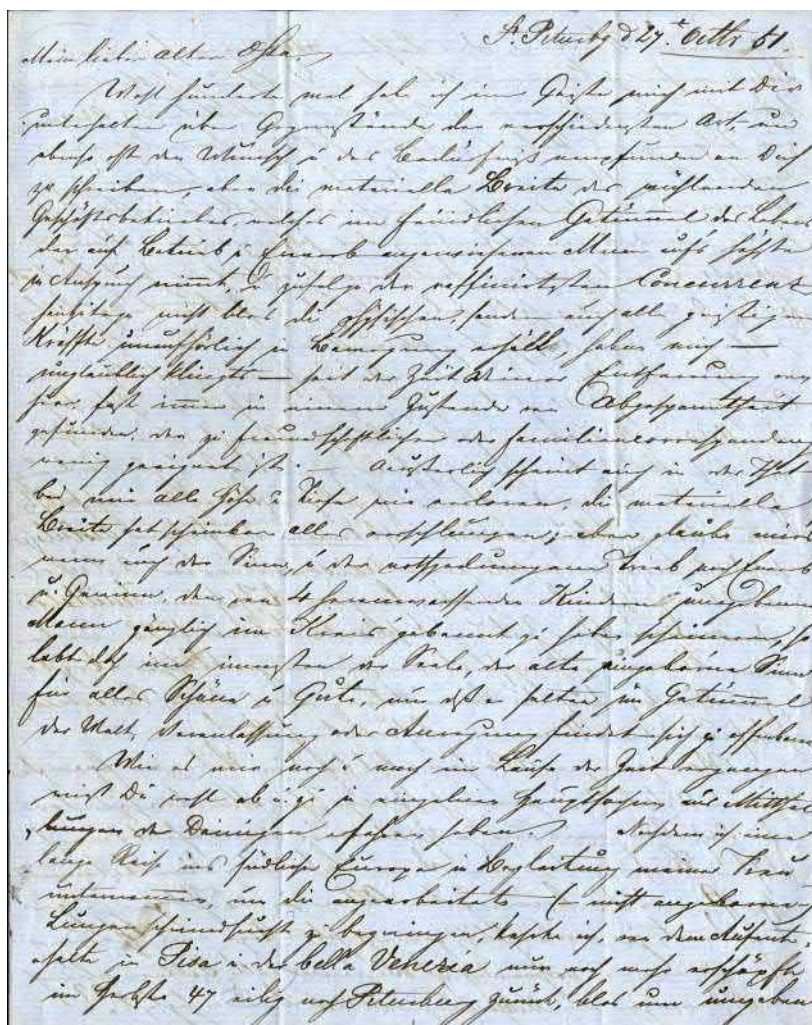 St. Petersbg d 27t. Octbr 51.
Mein lieber alter
Wohl hunderte mal habe ich im Geiste mich mit Dir
unterhalten über Gegenstände der verschiedensten Art, und
ebenso oft den Wunsch u das Bedürfniß empfunden an Dich
zu schreiben, aber die materielle Breite des
Geschäftsbetriebes, welches im feindlichen Getümmel des Lebens
den auf Betrieb u Erwerb angewiesenen Mann aufs höchste
in Anspruch nimmt, u zufolge der raffinirtesten Concurrenz
heutzutage nicht blos die physischen, sondern auch alle geistigen
Kräfte unaufhörlich in Bewegung erhält, haben mich —
unglaublich klingts — seit der Zeit Deiner Entfernung von
hier, fast immer in einem Zustande von Abgespanntheit
gefunden, der zu freundschaftlicher oder Familiencorrespondenz
wenig geeignet ist. — Äußerlich scheint auch in der That
bei mir alle Höhe u Tiefe verloren, die materielle
Breite hat scheinbar alles verschlungen; aber glaube mir
wenn auch der Sinn, u der nothgedrungene Trieb nach Erwerb
u. Gewinn, den von 4 heranwachsenden Kindern umgebenen
Mann gänzlich im Kreis gebannt zu haben scheinen, so
lebt doch im innersten der Seele, der alte angeborne Sinn
für alles Schöne u Gute, nur daß er selten im Getümmel
der Welt, Veranlassung oder Anregung findet sich zu offenbaren
Wie es mir nach u nach im Laufe der Zeit ergangen
wirst Du wohl ab u. zu in einzelnen Hauptsachen aus Mitthei-
lungen der Deinigen erfahren haben. Nachdem ich eine
lange Reise ins südliche Europa in Begleitung meiner Frau
unternommen, um die angearbeitete (- nicht angeborne)
Lungenschwindsucht zu bezwingen, kehrte ich, von dem Aufent-
halte in Pisa u der bella Venezia nur noch mehr erschöpft,
im Herbste 47 eilig nach Petersburg zurück, blos um umgeben